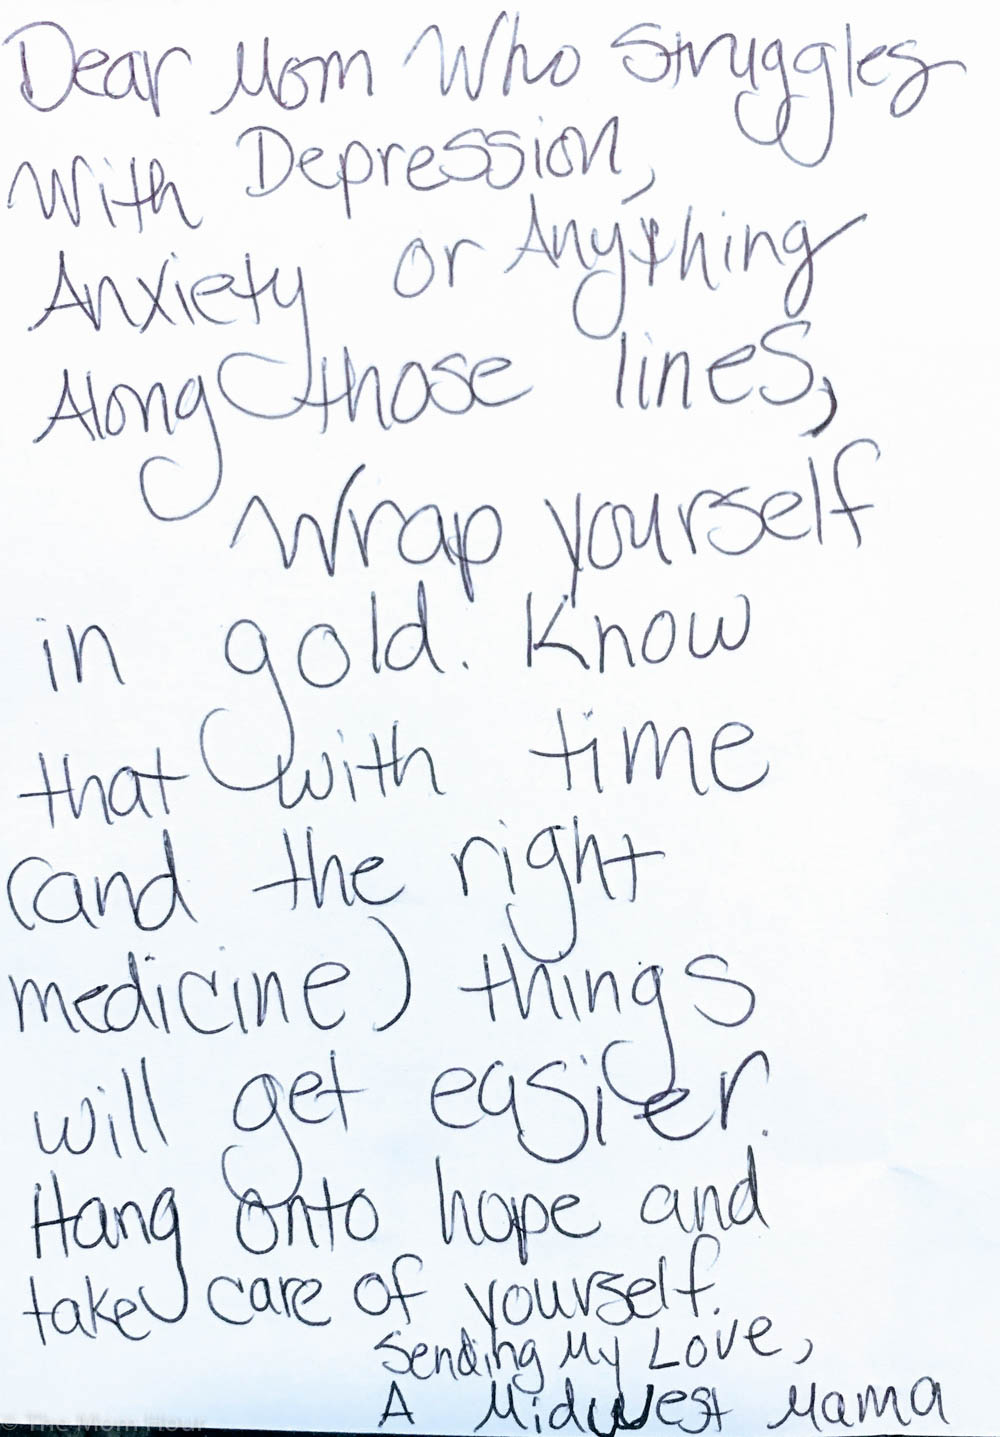 Dear Mom Who Struggles
With Depression,
Anxiety or Anything
Along those lines,
Wrap yourself
in gold. Know
that with time
(and the right
medicine) things
will get easier.
Hang onto hope and
take care of yourself.
Sending My Love,
A Midwest Mama
© The Mom Hour